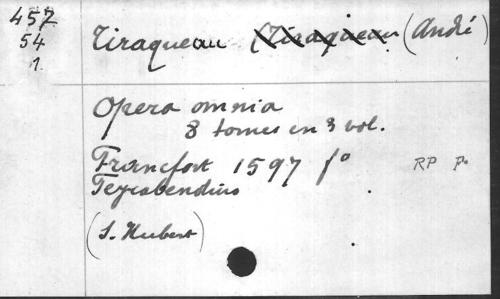 457
54
1.
Tiraqueau (André)
Opera omnia
8 tomes en 3 vol.
Francfort 1597 fº
RP
(S. Hubert)